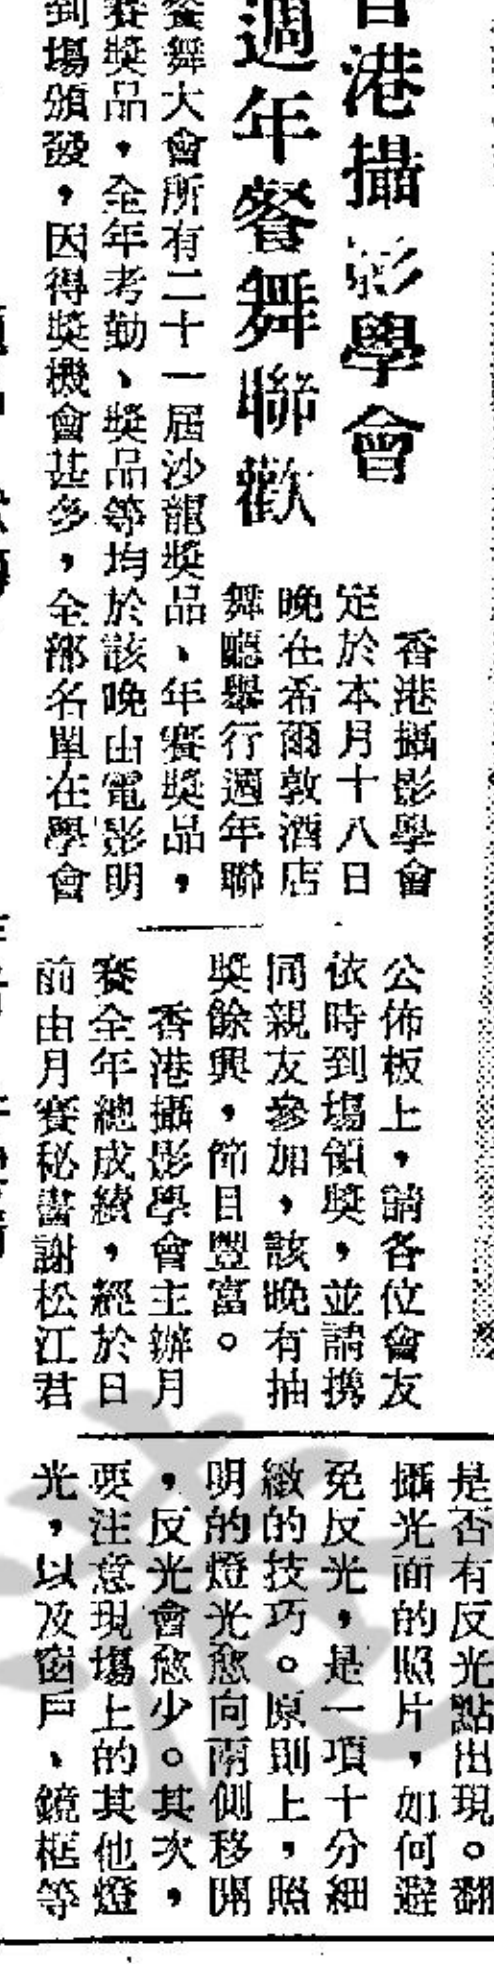 香港攝影學會
週年餐舞聯歡
香港攝影學會
定於本月十八日
晚在希爾敦酒店
舞廳舉行週年聯
餐舞大會所有二十一屆沙龍獎品、年賽獎品，
賽獎品，全年考勤、獎品等均於該晚由電影明
到塲頒發，因得獎機會甚多，全部名單在學會
公佈板上，請各位會友
依時到塲領獎，並請携
同親友參加，該晚有抽
獎餘興，節目豐富。
香港攝影學會主辦月
賽全年總成績，經於日
前由月賽秘書謝松江君
是否有反光點出現。翻
攝光面的照片，如何避
免反光，是一項十分細
緻的技巧。原則上，照
明的燈光愈向兩側移開
，反光會愈少。其次，
要注意現塲上的其他燈
光，以及窗戶、鏡框等